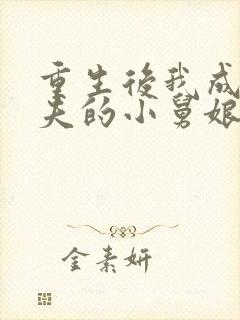 重生後我成
夫的小舅娘
金素妍